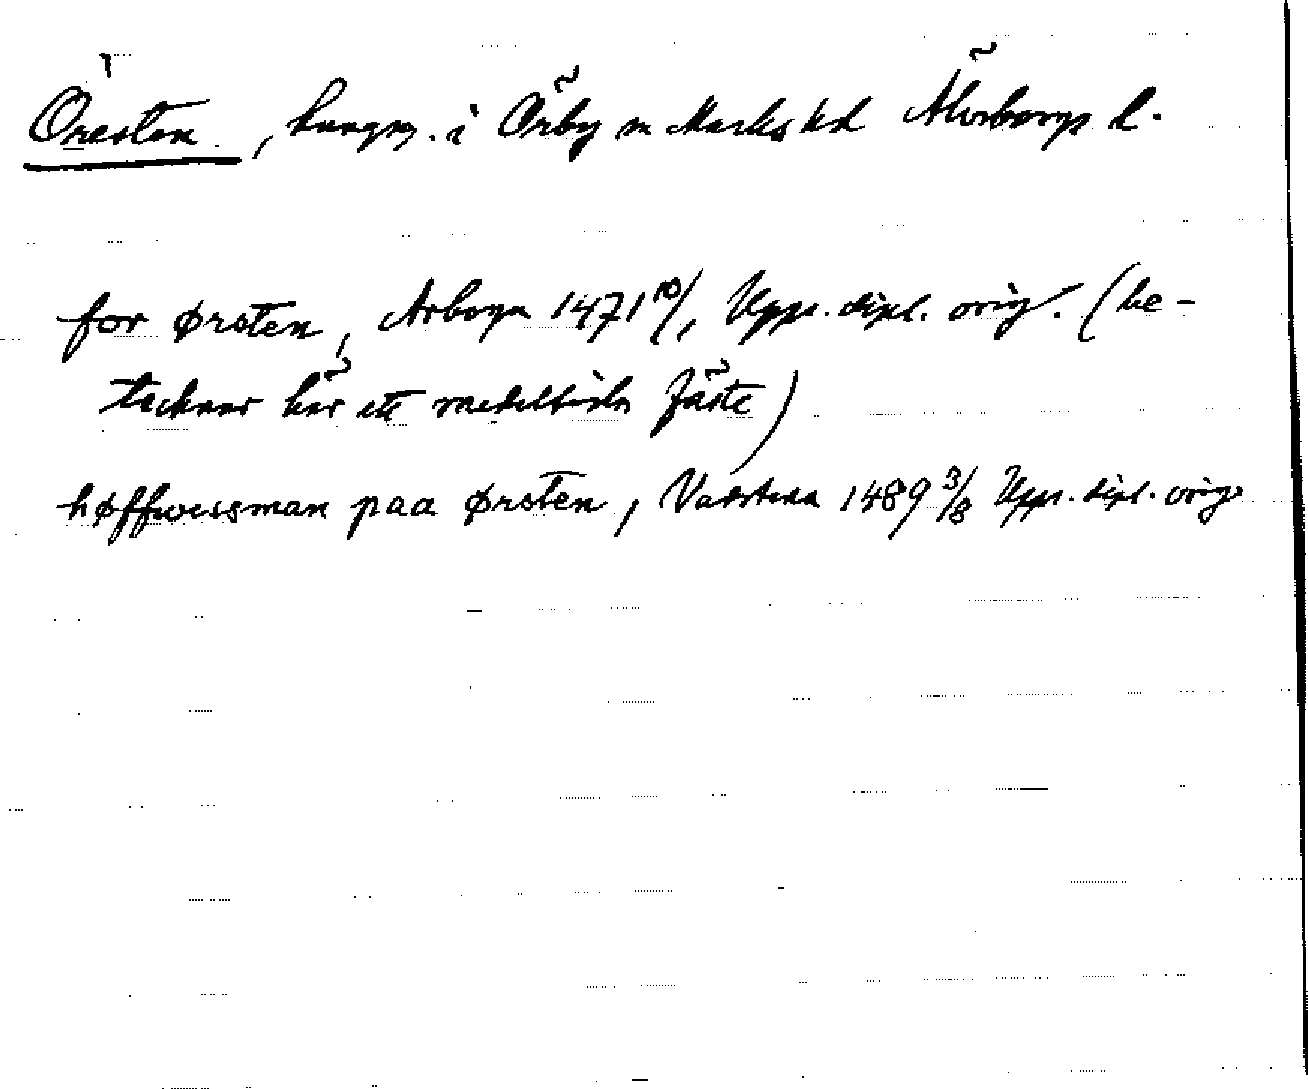 Öresten, kungsg. i Örby sn Marks hd Älvsborgs l.
for ørsten, Arboga 1471 10/, Upps. dipl. orig. (be-
tecknar här ett medeltida fäste)
høffwessman paa ørsten, Vadstena 1489 3/8 Upps. dipl. orig.